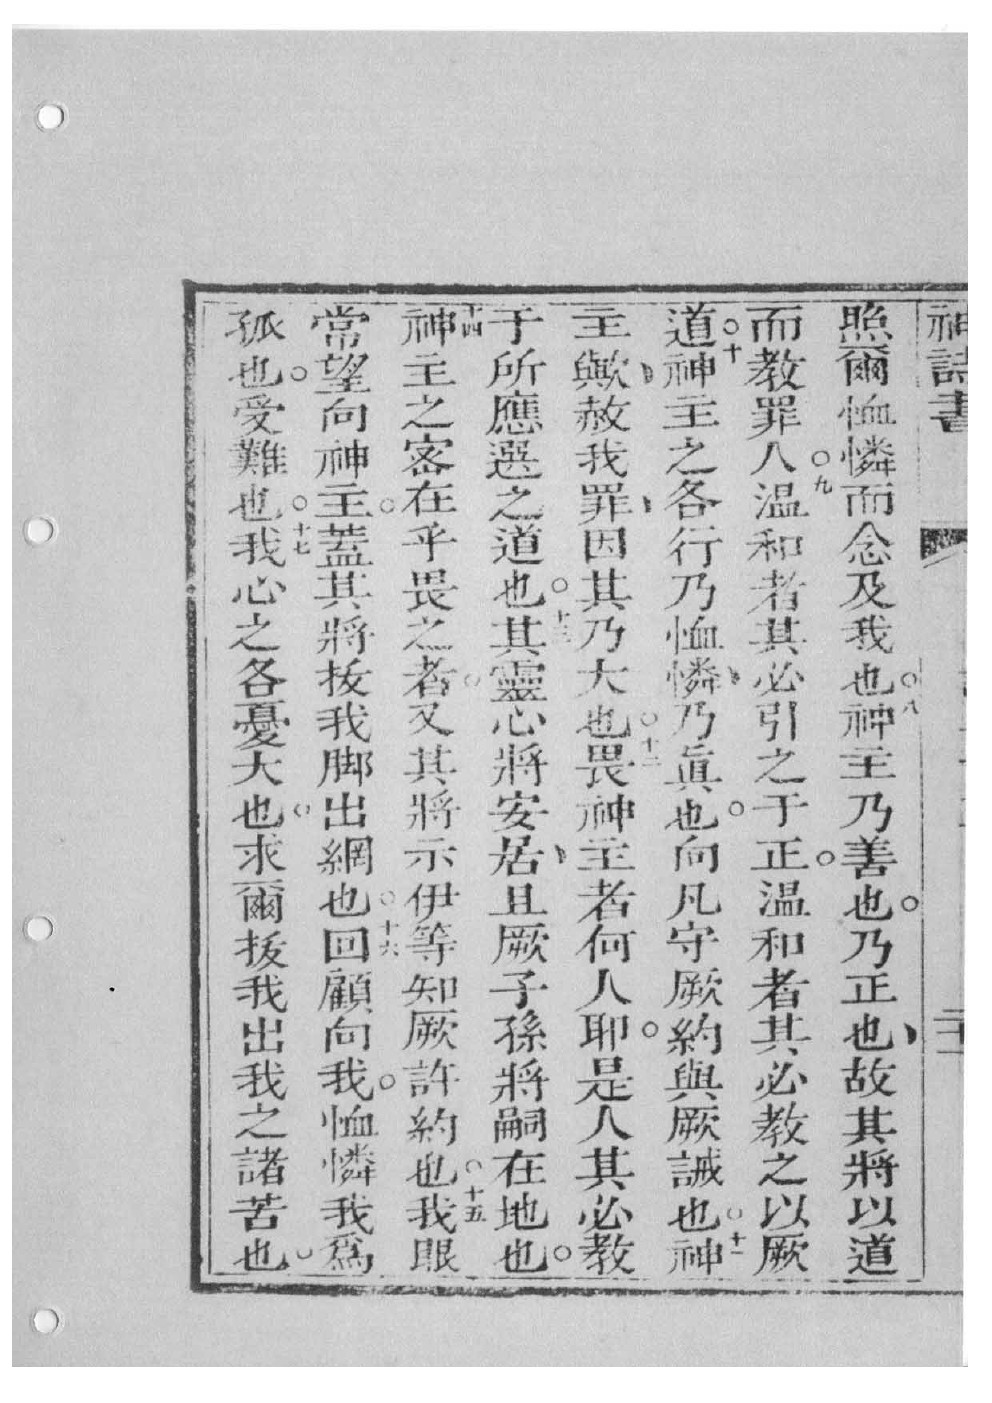 神詩書
照爾恤憐而念及我也○八神主乃善也○乃正也故其將以道
而教罪人○九温和者其必引之于正○温和者其必教之以厥
道○十神主之各行乃恤憐乃眞也○向凡守厥約與厥誡也○十一神
主歟赦我罪因其乃大也○十二畏神主者何人耶○是人其必教
于所應選之道也○十三其靈心將安居且厥子孫將嗣在地也○
十四神主之密在乎畏之者○又其將示伊等知厥許約也○十五我眼
常望向神主○蓋其將拔我脚出網也○十六回顧向我○恤憐我爲
孤也○受難也○十七我心之各憂大也○求爾拔我出我之諸苦也○